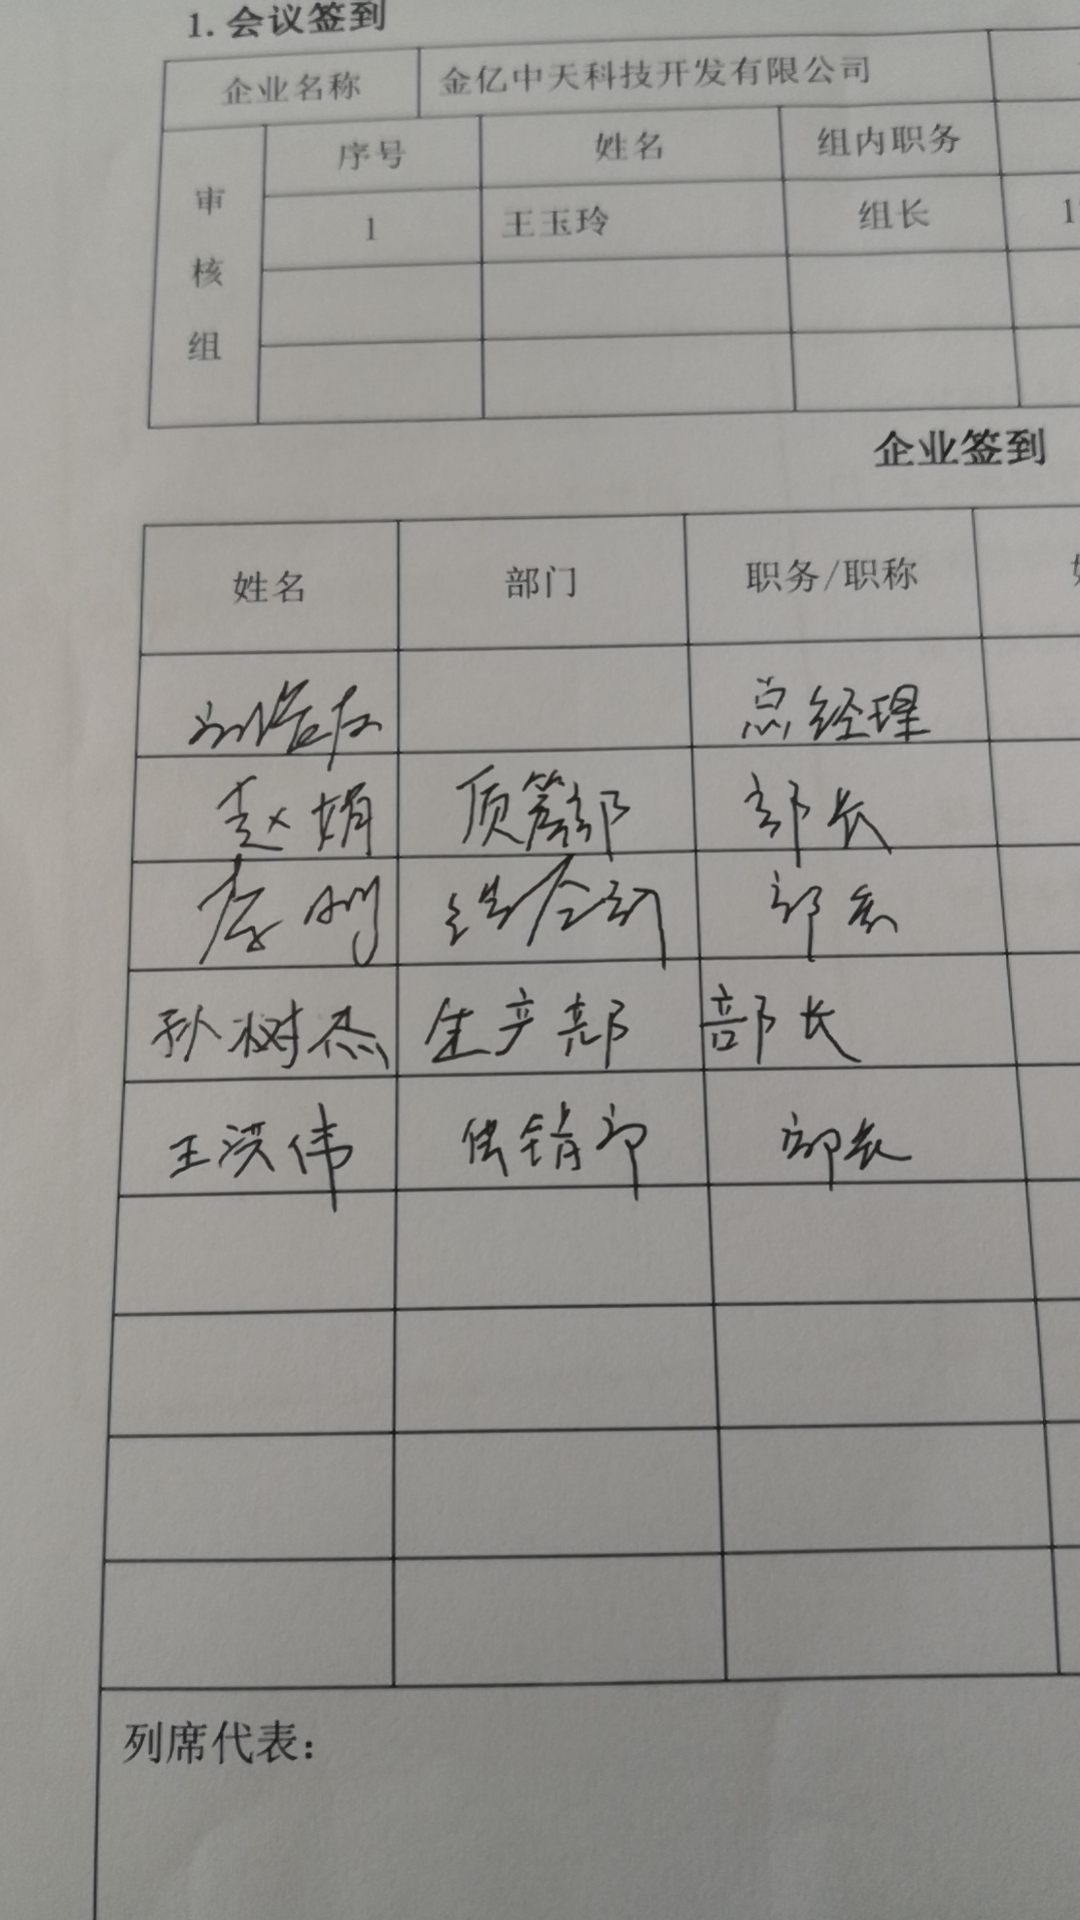 1. 会议签到
企业名称 金亿中天科技开发有限公司
审核组
序号 姓名 组内职务
1 王玉玲 组长
企业签到
姓名 部门 职务/职称
总经理
赵娟 质管部 部长
李刚 综合部 部长
孙树杰 生产部 部长
王洪伟 供销部 部长
列席代表：